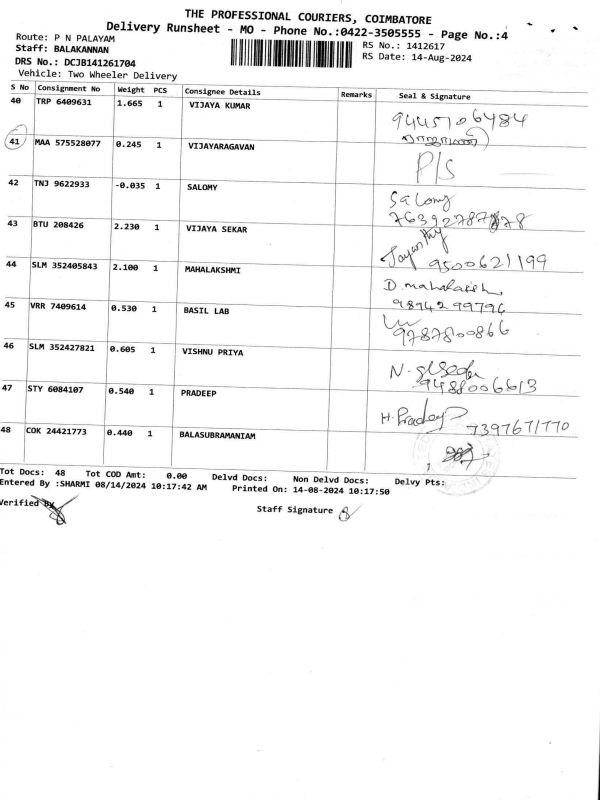 THE PROFESSIONAL COURIERS, COIMBATORE
Delivery Runsheet - MO - Phone No.:0422-3505555 - Page No.:4
Route: P N PALAYAM
RS No.: 1412617
Staff: BALAKANNAN
RS Date: 14-Aug-2024
DRS No.: DCJB141261704
Vehicle: Two Wheeler Delivery
S No Consignment No Weight PCS Consignee Details Remarks Seal & Signature
40 TRP 6409631 1.665 1 VIJAYA KUMAR 9445106484
41 MAA 575528077 0.245 1 VIJAYARAGAVAN P/S
42 TNJ 9622933 -0.035 1 SALOMY Salomy
43 BTU 208426 2.230 1 VIJAYA SEKAR Jayanthy
9500621199
44 SLM 352405843 2.100 1 MAHALAKSHMI D. mahalakshmi
9894299796
45 VRR 7409614 0.530 1 BASIL LAB
9787800866
46 SLM 352427821 0.605 1 VISHNU PRIYA
9488006613
47 STY 6084107 0.540 1 PRADEEP H. Pradeep 7397671770
48 COK 24421773 0.440 1 BALASUBRAMANIAM
Tot Docs: 48 Tot COD Amt: 0.00 Delvd Docs: Non Delvd Docs: Delvy Pts:
Entered By :SHARMI 08/14/2024 10:17:42 AM Printed On: 14-08-2024 10:17:50
Verified By
Staff Signature